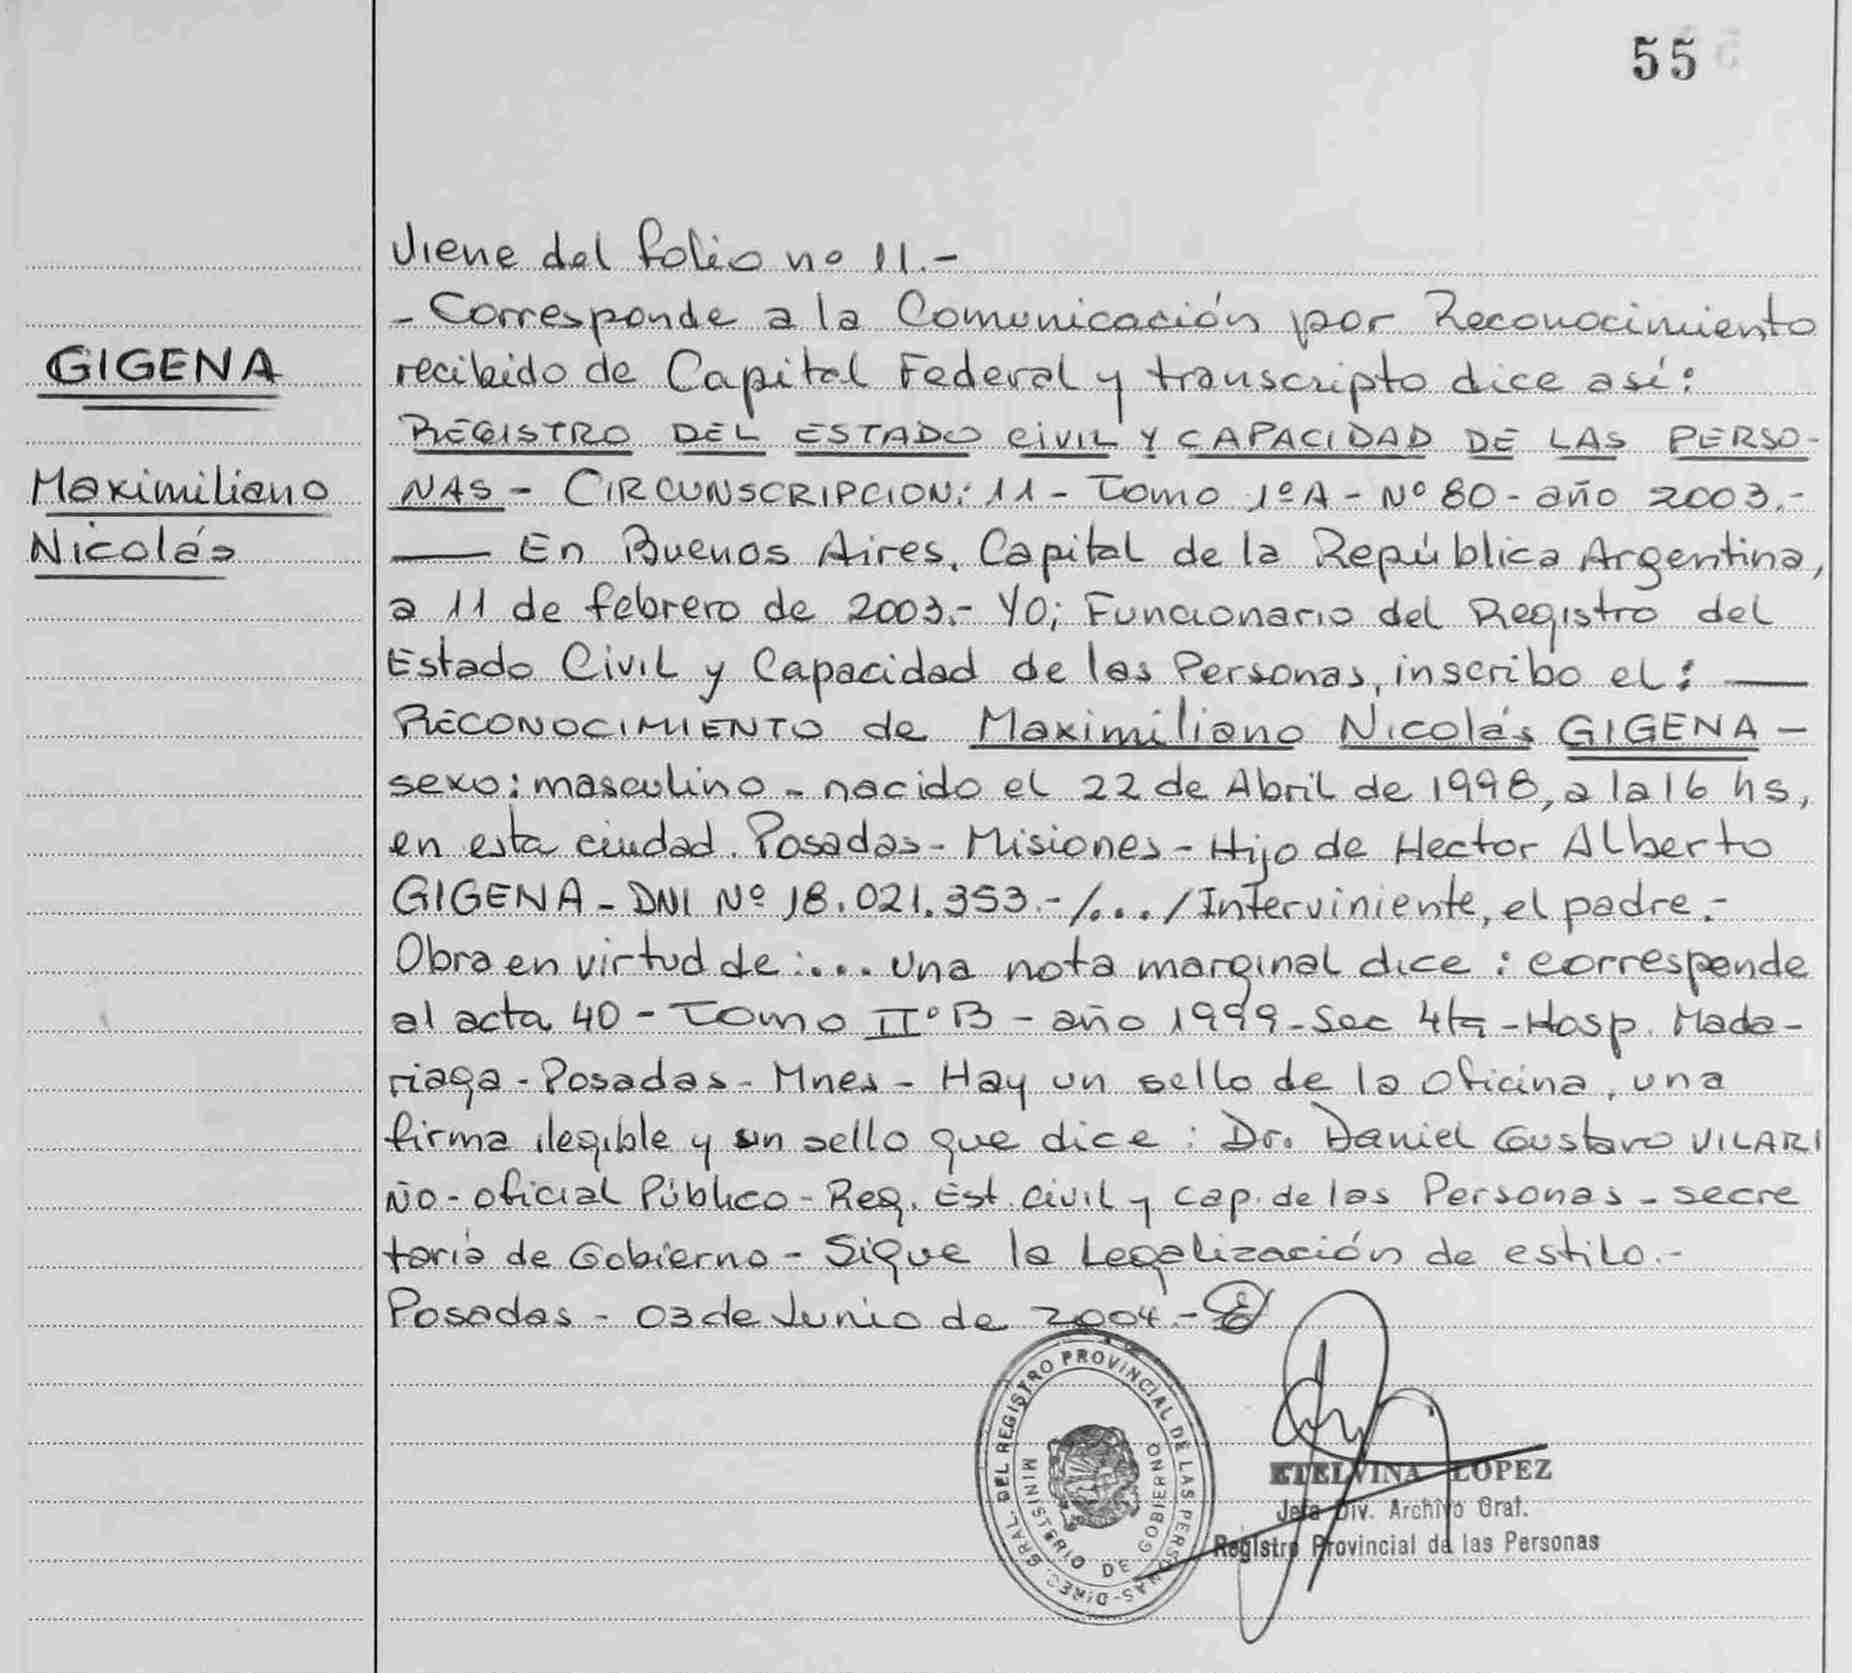 55
GIGENA
Maximiliano
Nicolás
Viene del folio nº 11.-
- Corresponde a la Comunicación por Reconocimiento
recibido de Capital Federal y transcripto dice así:
REGISTRO DEL ESTADO CIVIL Y CAPACIDAD DE LAS PERSO-
NAS - CIRCUNSCRIPCION: 11 - Tomo 1º A - Nº 80 - año 2003.-
—— En Buenos Aires, Capital de la República Argentina,
a 11 de febrero de 2003.- YO; Funcionario del Registro del
Estado Civil y Capacidad de las Personas, inscribo el: ——
RECONOCIMIENTO de Maximiliano Nicolás GIGENA -
sexo: masculino - nacido el 22 de Abril de 1998, a la 16 hs,
en esta ciudad. Posadas - Misiones - Hijo de Hector Alberto
GIGENA - DNI Nº 18.021.353.- /... / Interviniente, el padre.-
Obra en virtud de :... una nota marginal dice : corresponde
al acta 40 - Tomo IIº B - año 1999 - Sec 4ta - Hosp. Mada-
riaga - Posadas - Mnes - Hay un sello de la oficina, una
firma ilegible y un sello que dice : Dr. Daniel Gustavo VILARI
ÑO - oficial Público - Reg. Est. Civil y Cap. de las Personas - secre
taría de Gobierno - Sigue la Legalización de estilo.-
Posadas - 03 de Junio de 2004.-
DIREC. GRAL. DEL REGISTRO PROVINCIAL DE LAS PERSONAS -
MINISTERIO DE GOBIERNO
ETELVINA LOPEZ
Jefa Div. Archivo Gral.
Registro Provincial de las Personas